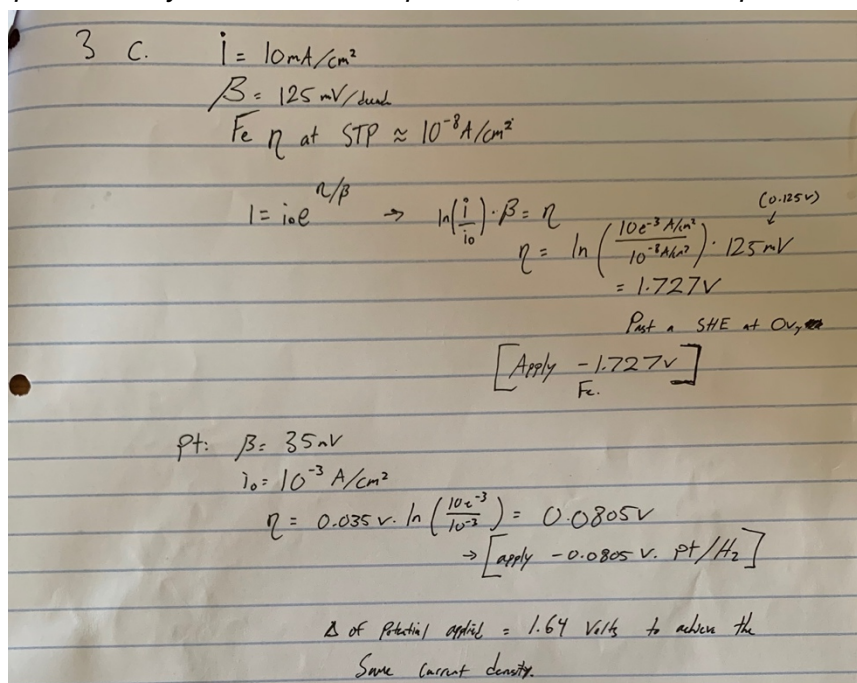 3 C. i = 10mA/cm²
β = 125 mV/decade
Fe η at STP ≈ 10⁻⁸A/cm²
I = i₀e^(η/β) → ln(i/i₀)·β = η
(0.125v)
↓
η = ln(10e⁻³ A/cm² / 10⁻⁸A/cm²)· 125mV
= 1.727V
Past a SHE at 0V,
[Apply -1.727v]
Fe.
pt: β = 35mV
i₀ = 10⁻³ A/cm²
η = 0.035 v. ln(10e⁻³/10⁻³) = 0.0805v
→ [apply -0.0805 V. pt/H₂]
Δ of Potential applied = 1.64 Volts to achieve the
Same Current density.